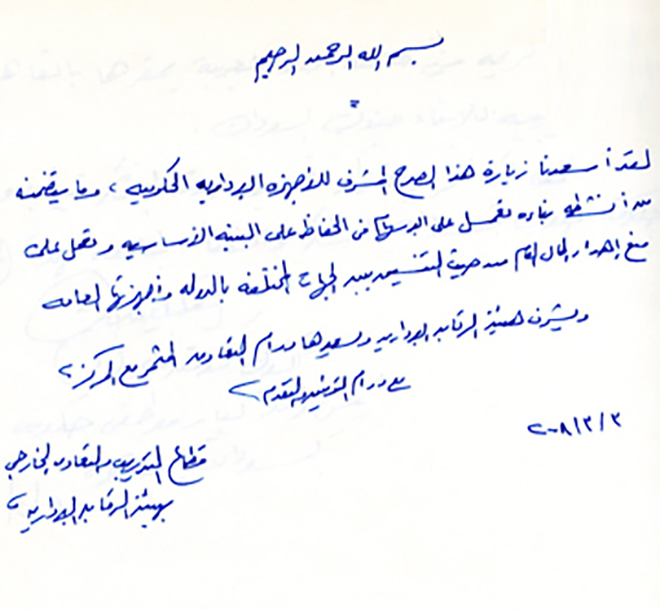 بسم الله الرحمن الرحيم
لقد أسعدنا زيارة هذا الصرح المشرف للأجهزة الإدارية الحكومية ، وما يتضمنه
من أنشطة بناءه تعمل على الإسهام في الحفاظ على البنية الأساسية وتعمل على
منع إهدار المال العام من حيث التنسيق بين الجهات المختلفة بالدولة وأجهزتها العامة
ويشرف هيئة الرقابة الإدارية ويسعدها دوام التعاون المثمر مع المركز ،
مع دوام التوفيق والتقدم ،
٢٠٠٨/٣/٣
قطاع التدريب والتعاون الخارجي
بهيئة الرقابة الإدارية ،